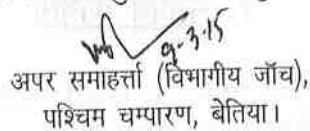 9-3-15
अपर समाहर्त्ता (विभागीय जाँच),
पश्चिम चम्पारण, बेतिया।